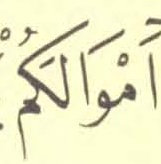 أَمْوَالَكُمْ